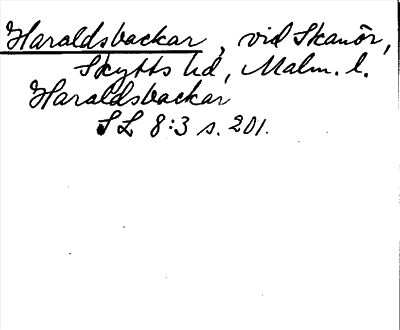 Haraldsbackar, vid Skanör,
Skytts hd, Malm. l.
Haraldsbackar
SL 8:3 s. 201.